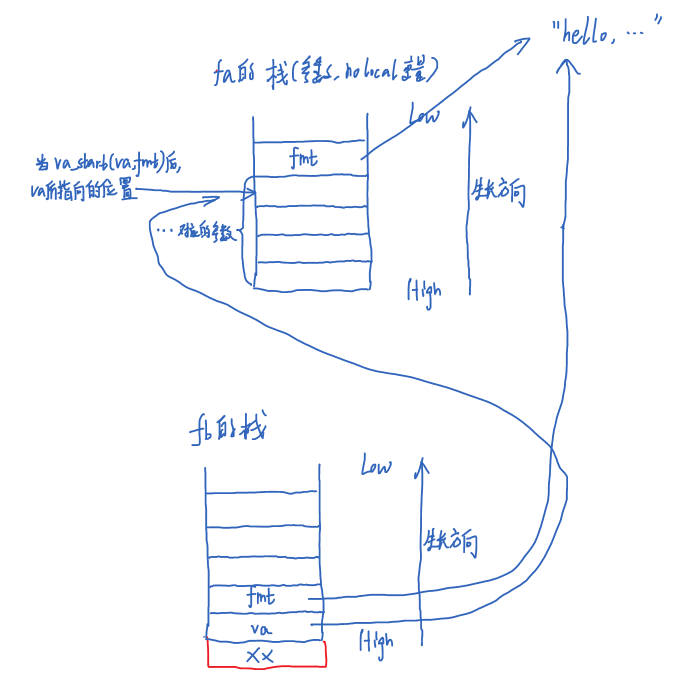 "hello, ..."
fa的栈(参数, no local 变量)
Low
fmt
当 va_start(va, fmt)后,
va所指向的位置
生长方向
... 对应的参数
High
fb的栈
Low
生长方向
fmt
va
High
XX